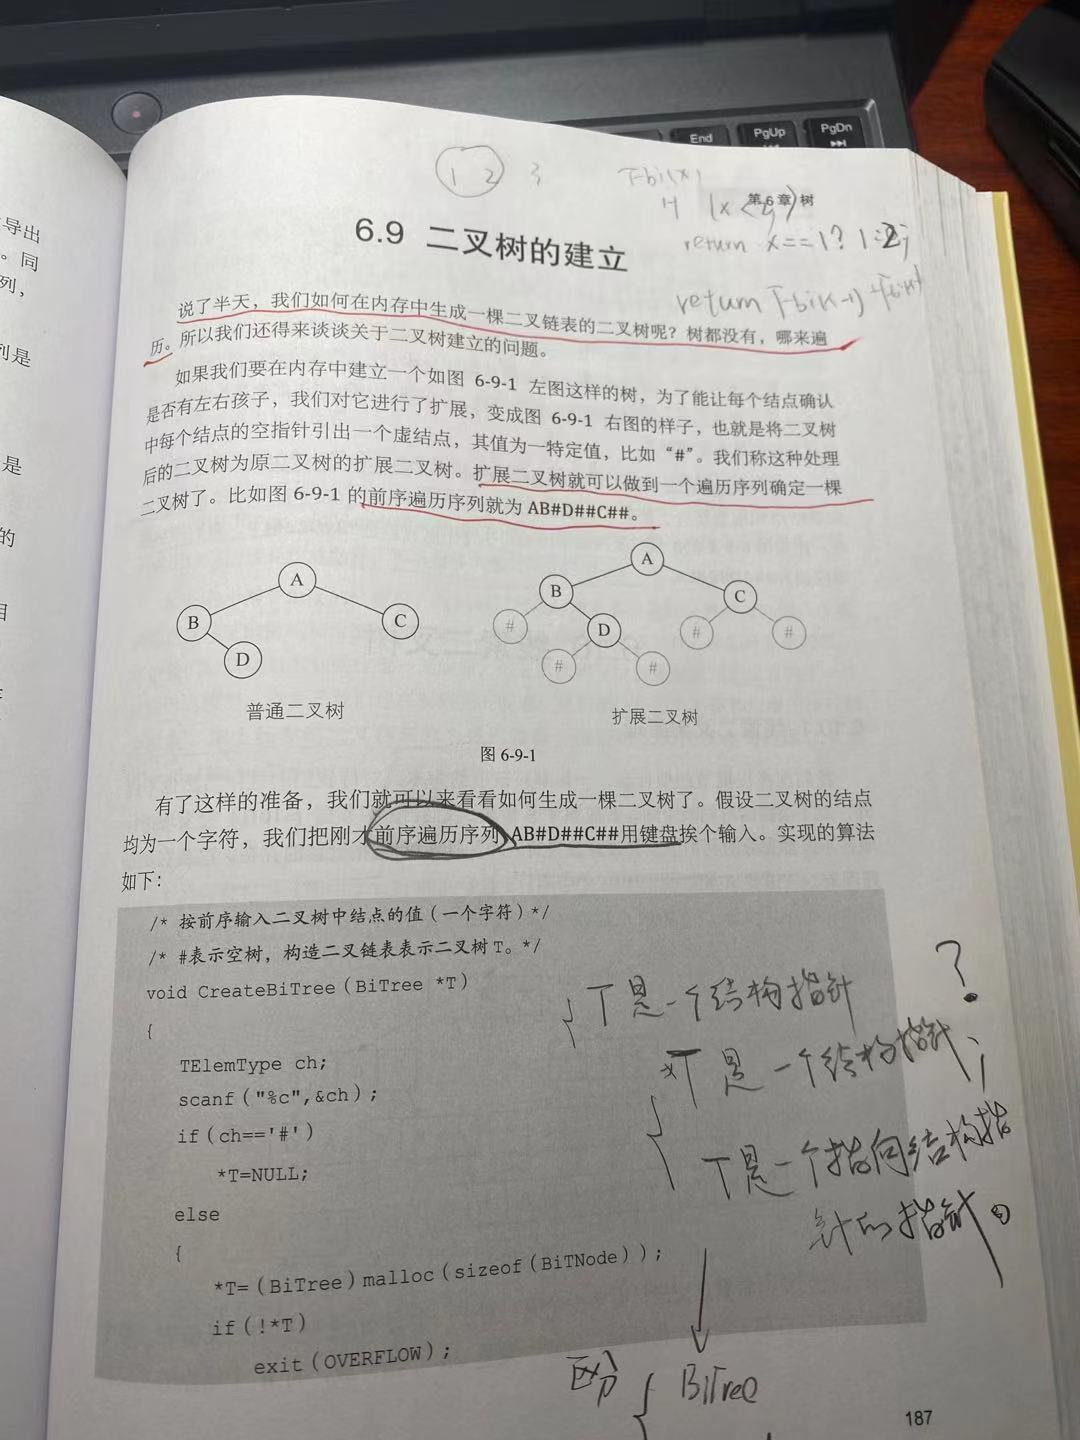 End PgUp PgDn
1 2 3
第6章 树
return x==1? 1:2;
6.9 二叉树的建立
说了半天，我们如何在内存中生成一棵二叉链表的二叉树呢？树都没有，哪来遍
历。所以我们还得来谈谈关于二叉树建立的问题。
如果我们要在内存中建立一个如图 6-9-1 左图这样的树，为了能让每个结点确认
是否有左右孩子，我们对它进行了扩展，变成图 6-9-1 右图的样子，也就是将二叉树
中每个结点的空指针引出一个虚结点，其值为一特定值，比如“#”。我们称这种处理
后的二叉树为原二叉树的扩展二叉树。扩展二叉树就可以做到一个遍历序列确定一棵
二叉树了。比如图 6-9-1 的前序遍历序列就为 AB#D##C##。
A
B C
D
A
B C
# D # #
# #
普通二叉树
扩展二叉树
图 6-9-1
有了这样的准备，我们就可以来看看如何生成一棵二叉树了。假设二叉树的结点
均为一个字符，我们把刚才前序遍历序列 AB#D##C##用键盘挨个输入。实现的算法
如下：
/* 按前序输入二叉树中结点的值（一个字符）*/
/* #表示空树，构造二叉链表表示二叉树T。*/
void CreateBiTree(BiTree *T)
{
TElemType ch;
scanf("%c",&ch);
if(ch=='#')
*T=NULL;
else
{
*T=(BiTree)malloc(sizeof(BiTNode));
if(!*T)
exit(OVERFLOW);
T是一个结构指针
?
*T是一个结构指针；
T是一个指向结构指
针的指针。
区分
BiTree
187
导出
。同
列，
列是
是
的